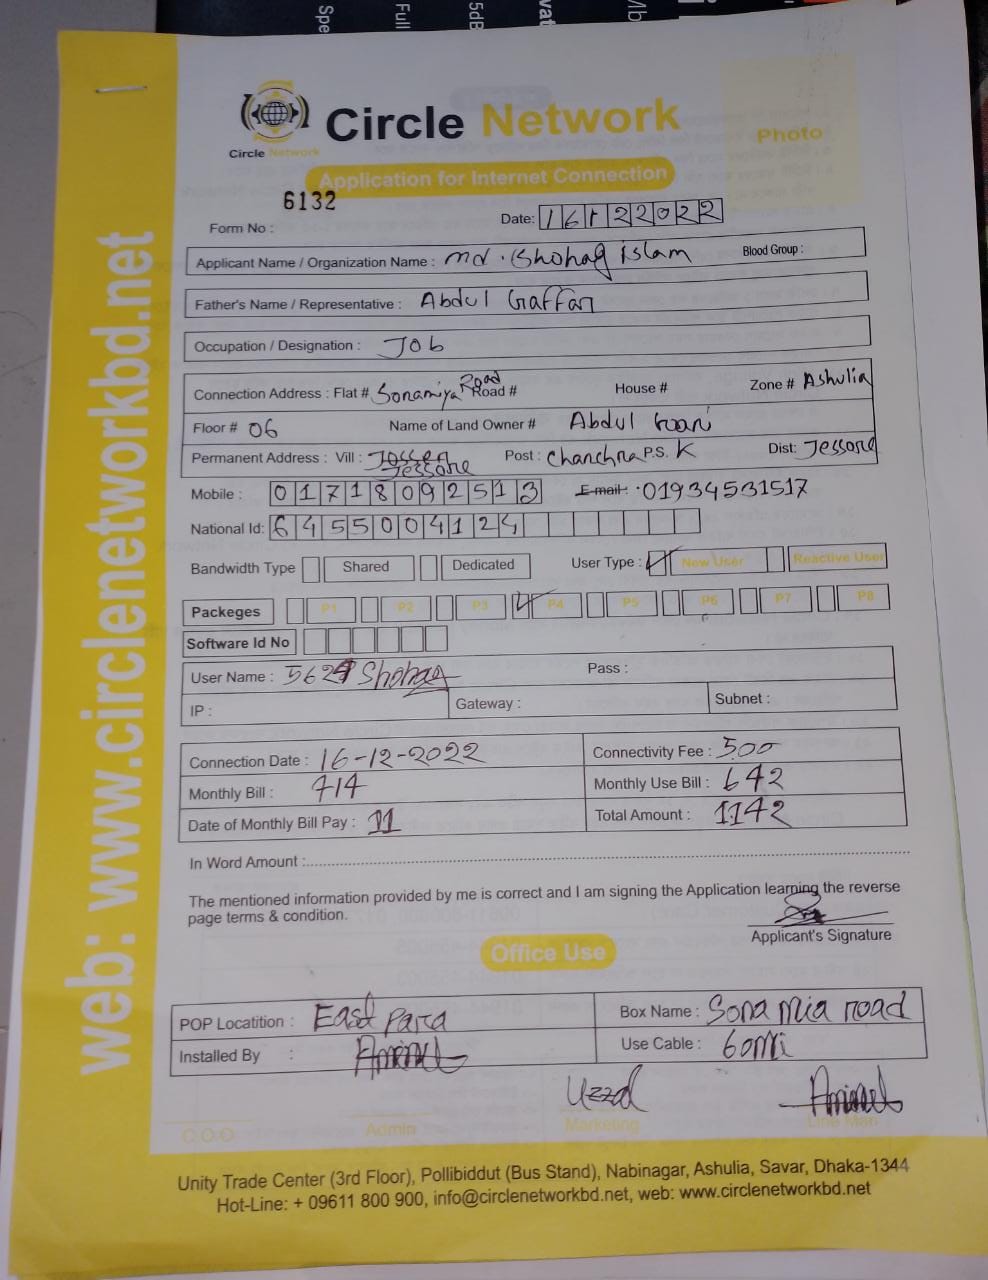 Spe
Full
5dB
vat
/lb
web: www.circlenetworkbd.net
Circle Network
Circle Network
Photo
Application for Internet Connection
6132
Form No :
Date: 16122022
Applicant Name / Organization Name : md. Shohag islam Blood Group :
Father's Name / Representative : Abdul Gaffar
Occupation / Designation : Job
Connection Address : Flat # Sonamiya Road Road # House # Zone # Ashulia
Floor # 06 Name of Land Owner # Abdul Goani
Permanent Address : Vill : Jessore Post : Chanchra P.S. K Dist: Jessore
Mobile : 01718092513 E-mail: 01934531517
National Id: 6455004124
Bandwidth Type Shared Dedicated User Type : New User Reactive User
Packeges P1 P2 P3 P4 P5 P6 P7 P8
Software Id No
User Name : 5624 Shohag Pass :
IP : Gateway : Subnet :
Connection Date : 16-12-2022 Connectivity Fee : 500
Monthly Bill : 714 Monthly Use Bill : 642
Date of Monthly Bill Pay : 11 Total Amount : 1142
In Word Amount :
The mentioned information provided by me is correct and I am signing the Application learning the reverse
page terms & condition.
Applicant's Signature
Office Use
POP Locatition : East Para Box Name : Sona Mia road
Installed By : Use Cable : 60mi
C.O.O Admin Marketing Line Man
Unity Trade Center (3rd Floor), Pollibiddut (Bus Stand), Nabinagar, Ashulia, Savar, Dhaka-1344
Hot-Line: + 09611 800 900, info@circlenetworkbd.net, web: www.circlenetworkbd.net